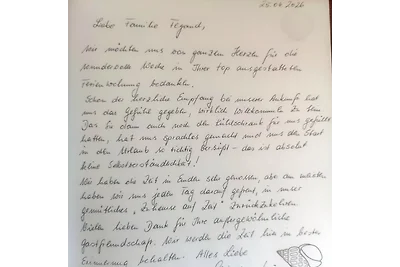 25.04.2026
Liebe Familie Tegand,
wir möchten uns von ganzem Herzen für die
wundervolle Woche in Ihrer top ausgestatteten
Ferienwohnung bedanken.
Schon der herzliche Empfang bei unserer Ankunft hat
uns das Gefühl gegeben, wirklich willkommen zu sein.
Das Sie dann auch noch den Kühlschrank für uns gefüllt
hatten, hat uns sprachlos gemacht und uns den Start
in den Urlaub so richtig versüßt - das ist absolut
keine Selbstverständlichkeit!
Wir haben die Zeit in Emden sehr genossen, aber am meisten
haben wir uns jeden Tag darauf gefreut, in unser
gemütliches "Zuhause auf Zeit" zurückzukehren.
Vielen lieben Dank für Ihre außergewöhnliche
Gastfreundschaft. Wir werden die Zeit hier in bester
Erinnerung behalten. Alles Liebe